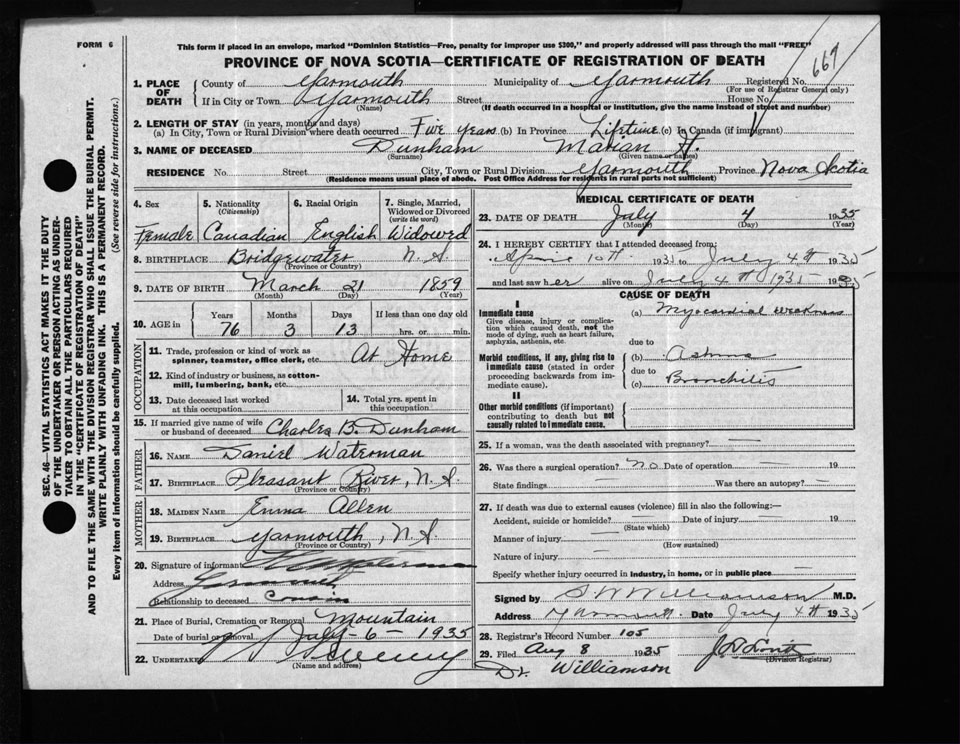 FORM 6
This form if placed in an envelope, marked "Dominion Statistics—Free, penalty for improper use $300," and properly addressed will pass through the mail "FREE"
667
PROVINCE OF NOVA SCOTIA—CERTIFICATE OF REGISTRATION OF DEATH
1. PLACE OF DEATH
County of Yarmouth Municipality of Yarmouth Registered No.
(For use of Registrar General only)
If in City or Town Yarmouth Street House No.
(Name) (If death occurred in a hospital or institution, give the name instead of street and number)
2. LENGTH OF STAY (in years, months and days)
(a) In City, Town or Rural Division where death occurred Five years (b) In Province Lifetime (c) In Canada (if immigrant)
3. NAME OF DECEASED Dunham Marian H.
(Surname) (Given name or names)
RESIDENCE No. Street City, Town or Rural Division Yarmouth Province Nova Scotia
(Residence means usual place of abode. Post Office Address for residents in rural parts not sufficient)
4. Sex 5. Nationality (Citizenship) 6. Racial Origin 7. Single, Married, Widowed or Divorced (write the word)
Female Canadian English Widowed
8. BIRTHPLACE Bridgewater N.S.
(Province or Country)
9. DATE OF BIRTH March 21 1859
(Month) (Day) (Year)
10. AGE in Years Months Days If less than one day old
76 3 13 hrs. or min.
OCCUPATION
11. Trade, profession or kind of work as spinner, teamster, office clerk, etc. At Home
12. Kind of industry or business, as cotton-mill, lumbering, bank, etc.
13. Date deceased last worked at this occupation
14. Total yrs. spent in this occupation
15. If married give name of wife or husband of deceased Charles B. Dunham
FATHER
16. NAME Daniel Waterman
17. BIRTHPLACE Pleasant River, N.S.
(Province or Country)
MOTHER
18. MAIDEN NAME Emma Allen
19. BIRTHPLACE Yarmouth, N.S.
(Province or Country)
20. Signature of informant Waterman
Address Yarmouth
Relationship to deceased Cousin
21. Place of Burial, Cremation or Removal Mountain
Date of burial or removal July - 6 - 1935
22. UNDERTAKER Sweeny
(Name and address)
MEDICAL CERTIFICATE OF DEATH
23. DATE OF DEATH July 4 1935
(Month) (Day) (Year)
24. I HEREBY CERTIFY that I attended deceased from:
April 10th 1935 to July 4th 1935
and last saw her alive on July 4th 1935 1935
CAUSE OF DEATH
I
Immediate cause
Give disease, injury or complication which caused death, not the mode of dying, such as heart failure, asphyxia, asthenia, etc.
(a) Myocardial weakness
due to
Morbid conditions, if any, giving rise to immediate cause (stated in order proceeding backwards from immediate cause).
(b) Asthma
due to
(c) Bronchitis
II
Other morbid conditions (if important) contributing to death but not causally related to immediate cause.
25. If a woman, was the death associated with pregnancy? —
26. Was there a surgical operation? no Date of operation — 19
State findings — Was there an autopsy? —
27. If death was due to external causes (violence) fill in also the following:—
Accident, suicide or homicide? — Date of injury 19
(State which)
Manner of injury —
(How sustained)
Nature of injury —
Specify whether injury occurred in industry, in home, or in public place —
Signed by S W Williamson M.D.
Address Yarmouth Date July 4th 1935
28. Registrar's Record Number 105
29. Filed Aug 8 1935
(Division Registrar)
Dr. Williamson
SEC. 46—VITAL STATISTICS ACT MAKES IT THE DUTY
OF THE UNDERTAKER OR PERSON ACTING AS UNDER-
TAKER TO OBTAIN ALL THE PARTICULARS REQUIRED
IN THE "CERTIFICATE OF REGISTRATION OF DEATH"
AND TO FILE THE SAME WITH THE DIVISION REGISTRAR WHO SHALL ISSUE THE BURIAL PERMIT.
WRITE PLAINLY WITH UNFADING INK. THIS IS A PERMANENT RECORD.
Every item of information should be carefully supplied. (See reverse side for instructions.)